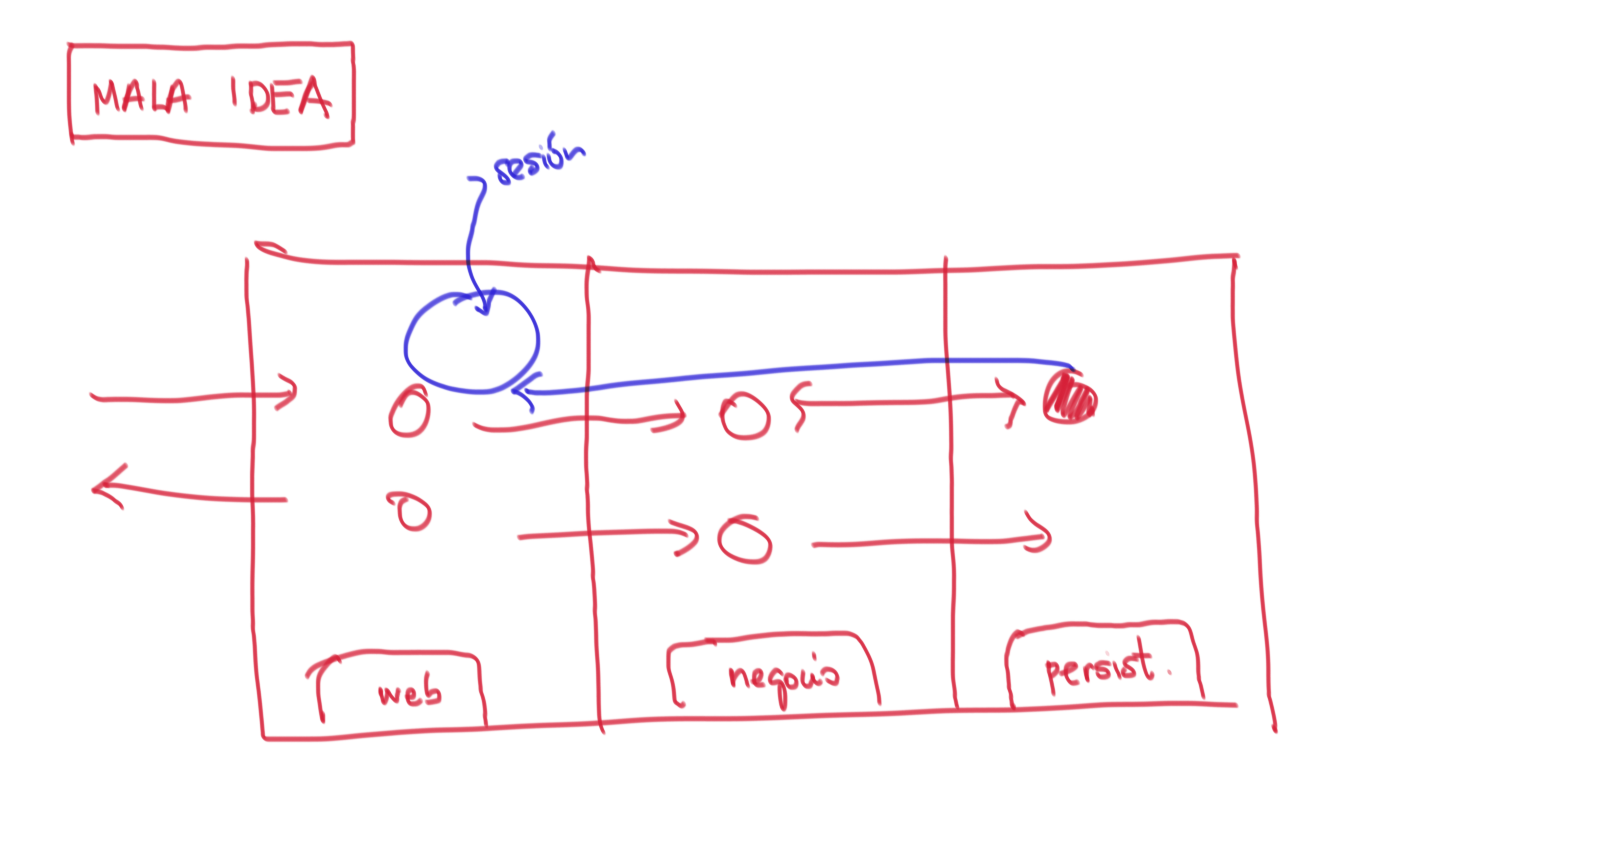 MALA IDEA
sesión
web
negocio
persist.